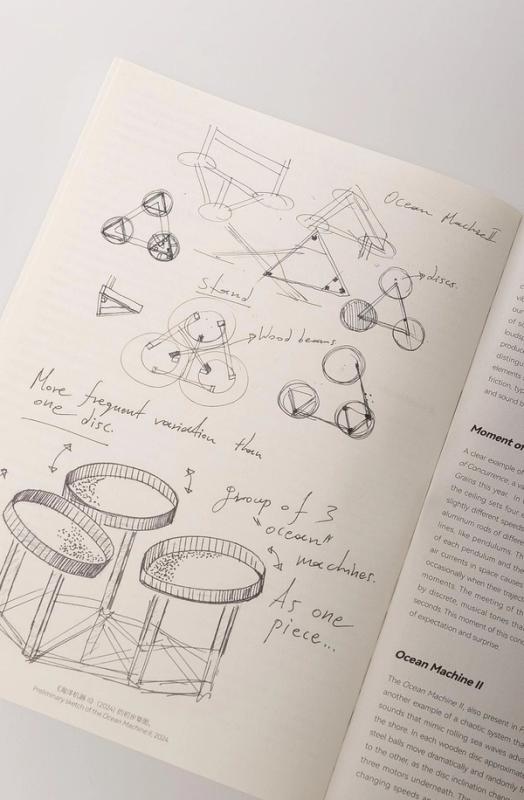 Ocean Machine II
discs.
Stand
Wood beams
More frequent variation than
one disc.
group of 3
"ocean"
machines.
As one
piece...
《海洋机器 II》(2024) 的初步草图。
Preliminary sketch of the Ocean Machine II, 2024.
of s
louds
produc
distingu
elements
friction, typ
and sound b
Moment o
A clear example o
of Concurrence, a va
Grains this year. In
the ceiling sets four
slightly different speed
aluminum rods of differ
lines, like pendulums. T
of each pendulum and the
air currents in space cause
occasionally when their traject
moments. The meeting of t
by discrete, musical tones tha
seconds. This moment of this conc
of expectation and surprise.
Ocean Machine II
The Ocean Machine II, also present in F
another example of a chaotic system tha
sounds that mimic rolling sea waves adv
the shore. In each wooden disc approximate
steel balls move dramatically and randomly f
to the other, as the disc inclination chan
three motors underneath. The
changing speeds a